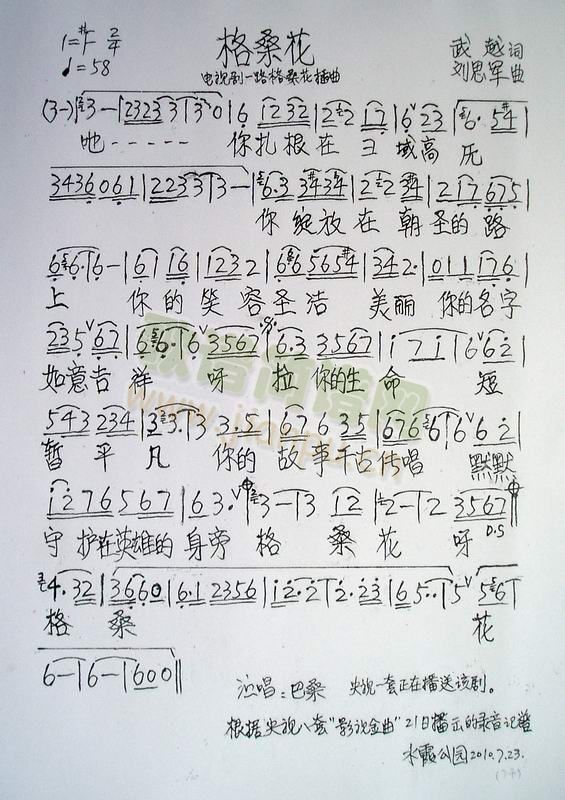 1=#F 2/4 格桑花 武越词
♩=58 电视剧一路格桑花插曲 刘思军曲
(3-) 3-|2323 3 3|3 0|6 12 32|2 2 17|6 23|6· 5 4|
吔----- 你扎根在 域高
3436 061|2233|3-|6·3 34 34|2 2 34|2 17 675|
你绽放在朝圣的路
6 6·|6-|61 16|1232|6 6 5654|342·|011 176|
上 你的笑容圣洁 美丽 你的名字
235 67|6 6·|6 3567|6·3 3567|i 7 i|6 62|
如意吉祥 呀 拉你的生命 短
543 234|3 3·|3 3·5|67 6 35|676 6|6 62|
暂平凡 你的故事千古传唱 默默
i276 567|63·|3-|3 12|2-|2 3567|
守护在英雄的身旁 格桑花 呀 D.S
4·32|3660|6·1 2356|i2·2|2·23|65··|5 56|
格桑 花
6-|6-|600||
演唱:巴桑 央视一套正在播送该剧。
根据央视八套"影视金曲"21日播出的录音记谱
水霞公园2010.7.23.